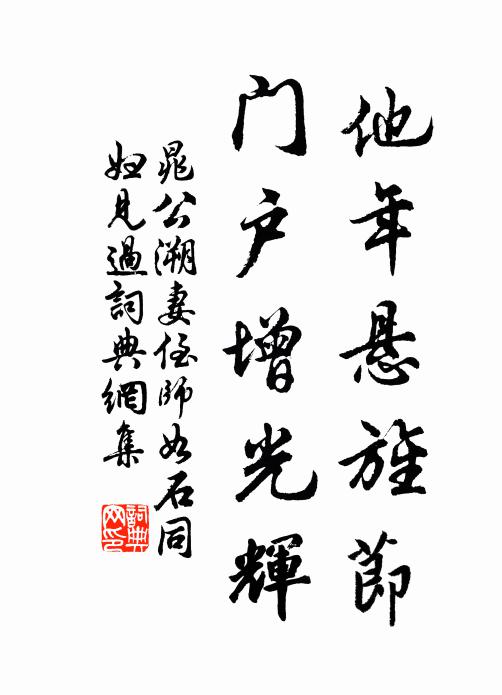 他年悬旌節
门户增光輝
晁公溯妻侄師如石同
妞見過詞典網集
詞典
网印